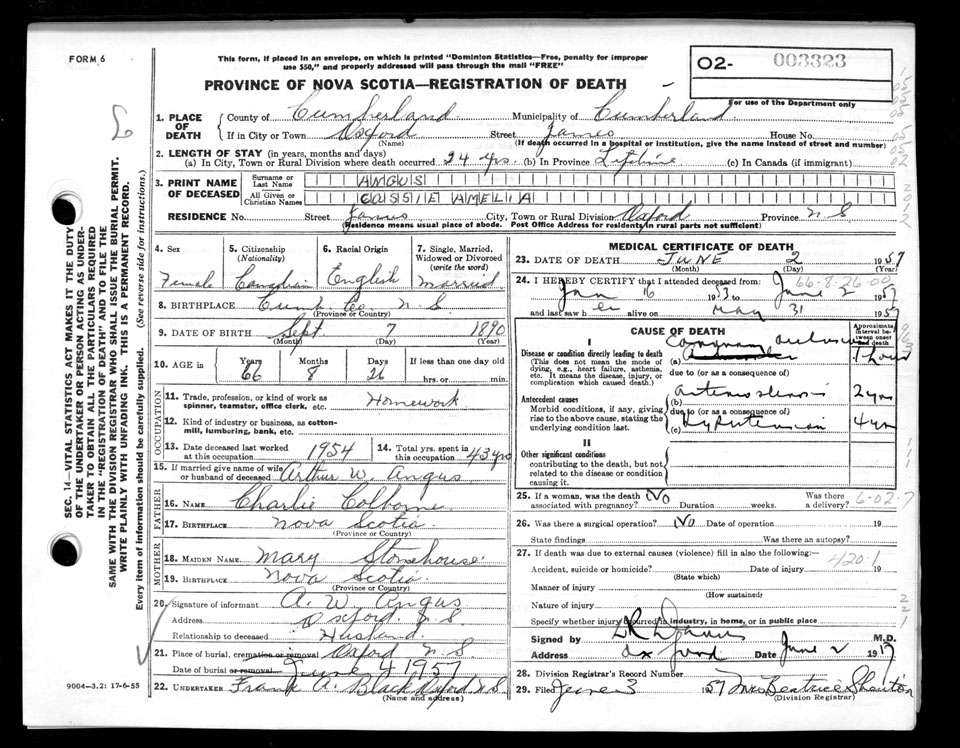 FORM 6
This form, if placed in an envelope, on which is printed "Dominion Statistics—Free, penalty for improper
use $50," and properly addressed will pass through the mail "FREE"
PROVINCE OF NOVA SCOTIA—REGISTRATION OF DEATH
O2- 003323
For use of the Department only
1. PLACE OF DEATH County of Cumberland Municipality of Cumberland
If in City or Town Oxford Street James House No.
(Name) (If death occurred in a hospital or institution, give the name instead of street and number)
2. LENGTH OF STAY (in years, months and days)
(a) In City, Town or Rural Division where death occurred 24 yrs. (b) In Province Lifetime (c) In Canada (if immigrant)
3. PRINT NAME OF DECEASED Surname or Last Name ANGUS
All Given or Christian Names CASSIE AMELIA
RESIDENCE No. Street James City, Town or Rural Division Oxford Province N.S
(Residence means usual place of abode. Post Office Address for residents in rural parts not sufficient)
4. Sex Female
5. Citizenship (Nationality) Canadian
6. Racial Origin English
7. Single, Married, Widowed or Divorced (write the word) Married
8. BIRTHPLACE Cumb. Co. N.S
(Province or Country)
9. DATE OF BIRTH Sept 7 1890
(Month) (Day) (Year)
10. AGE in Years 66 Months 8 Days 26 If less than one day old
hrs. or min.
OCCUPATION
11. Trade, profession, or kind of work as spinner, teamster, office clerk, etc. Homework
12. Kind of industry or business, as cotton-mill, lumbering, bank, etc.
13. Date deceased last worked at this occupation 1954
14. Total yrs. spent in this occupation 43 yrs
15. If married give name of wife or husband of deceased Arthur W. Angus
FATHER
16. NAME Charlie Colborne
17. BIRTHPLACE Nova Scotia
(Province or Country)
MOTHER
18. MAIDEN NAME Mary Stonehouse
19. BIRTHPLACE Nova Scotia
(Province or Country)
20. Signature of informant A. W. Angus
Address Oxford N.S.
Relationship to deceased Husband
21. Place of burial, cremation or removal Oxford N.S.
Date of burial or removal June 4 1957
22. UNDERTAKER Frank A. Black Oxford N.S.
(Name and address)
9004-3.2: 17-6-55
MEDICAL CERTIFICATE OF DEATH
23. DATE OF DEATH JUNE 2 1957
(Month) (Day) (Year)
66-8-26-00
24. I HEREBY CERTIFY that I attended deceased from:
Jan 16 1953 to June 2 1957
and last saw her alive on May 31 1957
CAUSE OF DEATH
Approximate interval between onset and death
I
Disease or condition directly leading to death (a) Coronary occlusion 1 hour
(This does not mean the mode of dying, e.g., heart failure, asthenia, etc. It means the disease, injury, or complication which caused death.)
due to (or as a consequence of)
Antecedent causes (b) Arteriosclerosis 2 yrs
Morbid conditions, if any, giving rise to the above cause, stating the underlying condition last.
due to (or as a consequence of)
(c) Hypertension 4 yrs
II
Other significant conditions
contributing to the death, but not related to the disease or condition causing it.
25. If a woman, was the death associated with pregnancy? No Duration weeks. Was there a delivery?
6-02-7
26. Was there a surgical operation? No Date of operation 19
State findings Was there an autopsy?
27. If death was due to external causes (violence) fill in also the following:—
420.1
Accident, suicide or homicide? Date of injury 19
(State which)
Manner of injury
(How sustained)
Nature of injury
Specify whether injury occurred in industry, in home, or in public place
Signed by M.D.
Address Oxford Date June 2 1957
28. Division Registrar's Record Number
29. Filed June 3 1957 Mrs Beatrice Shenton
(Division Registrar)
SEC. 14—VITAL STATISTICS ACT MAKES IT THE DUTY
OF THE UNDERTAKER OR PERSON ACTING AS UNDER-
TAKER TO OBTAIN ALL THE PARTICULARS REQUIRED
IN THE "REGISTRATION OF DEATH" AND TO FILE THE
SAME WITH THE DIVISION REGISTRAR WHO SHALL ISSUE THE BURIAL PERMIT.
WRITE PLAINLY WITH UNFADING INK. THIS IS A PERMANENT RECORD.
Every item of information should be carefully supplied. (See reverse side for instructions.)